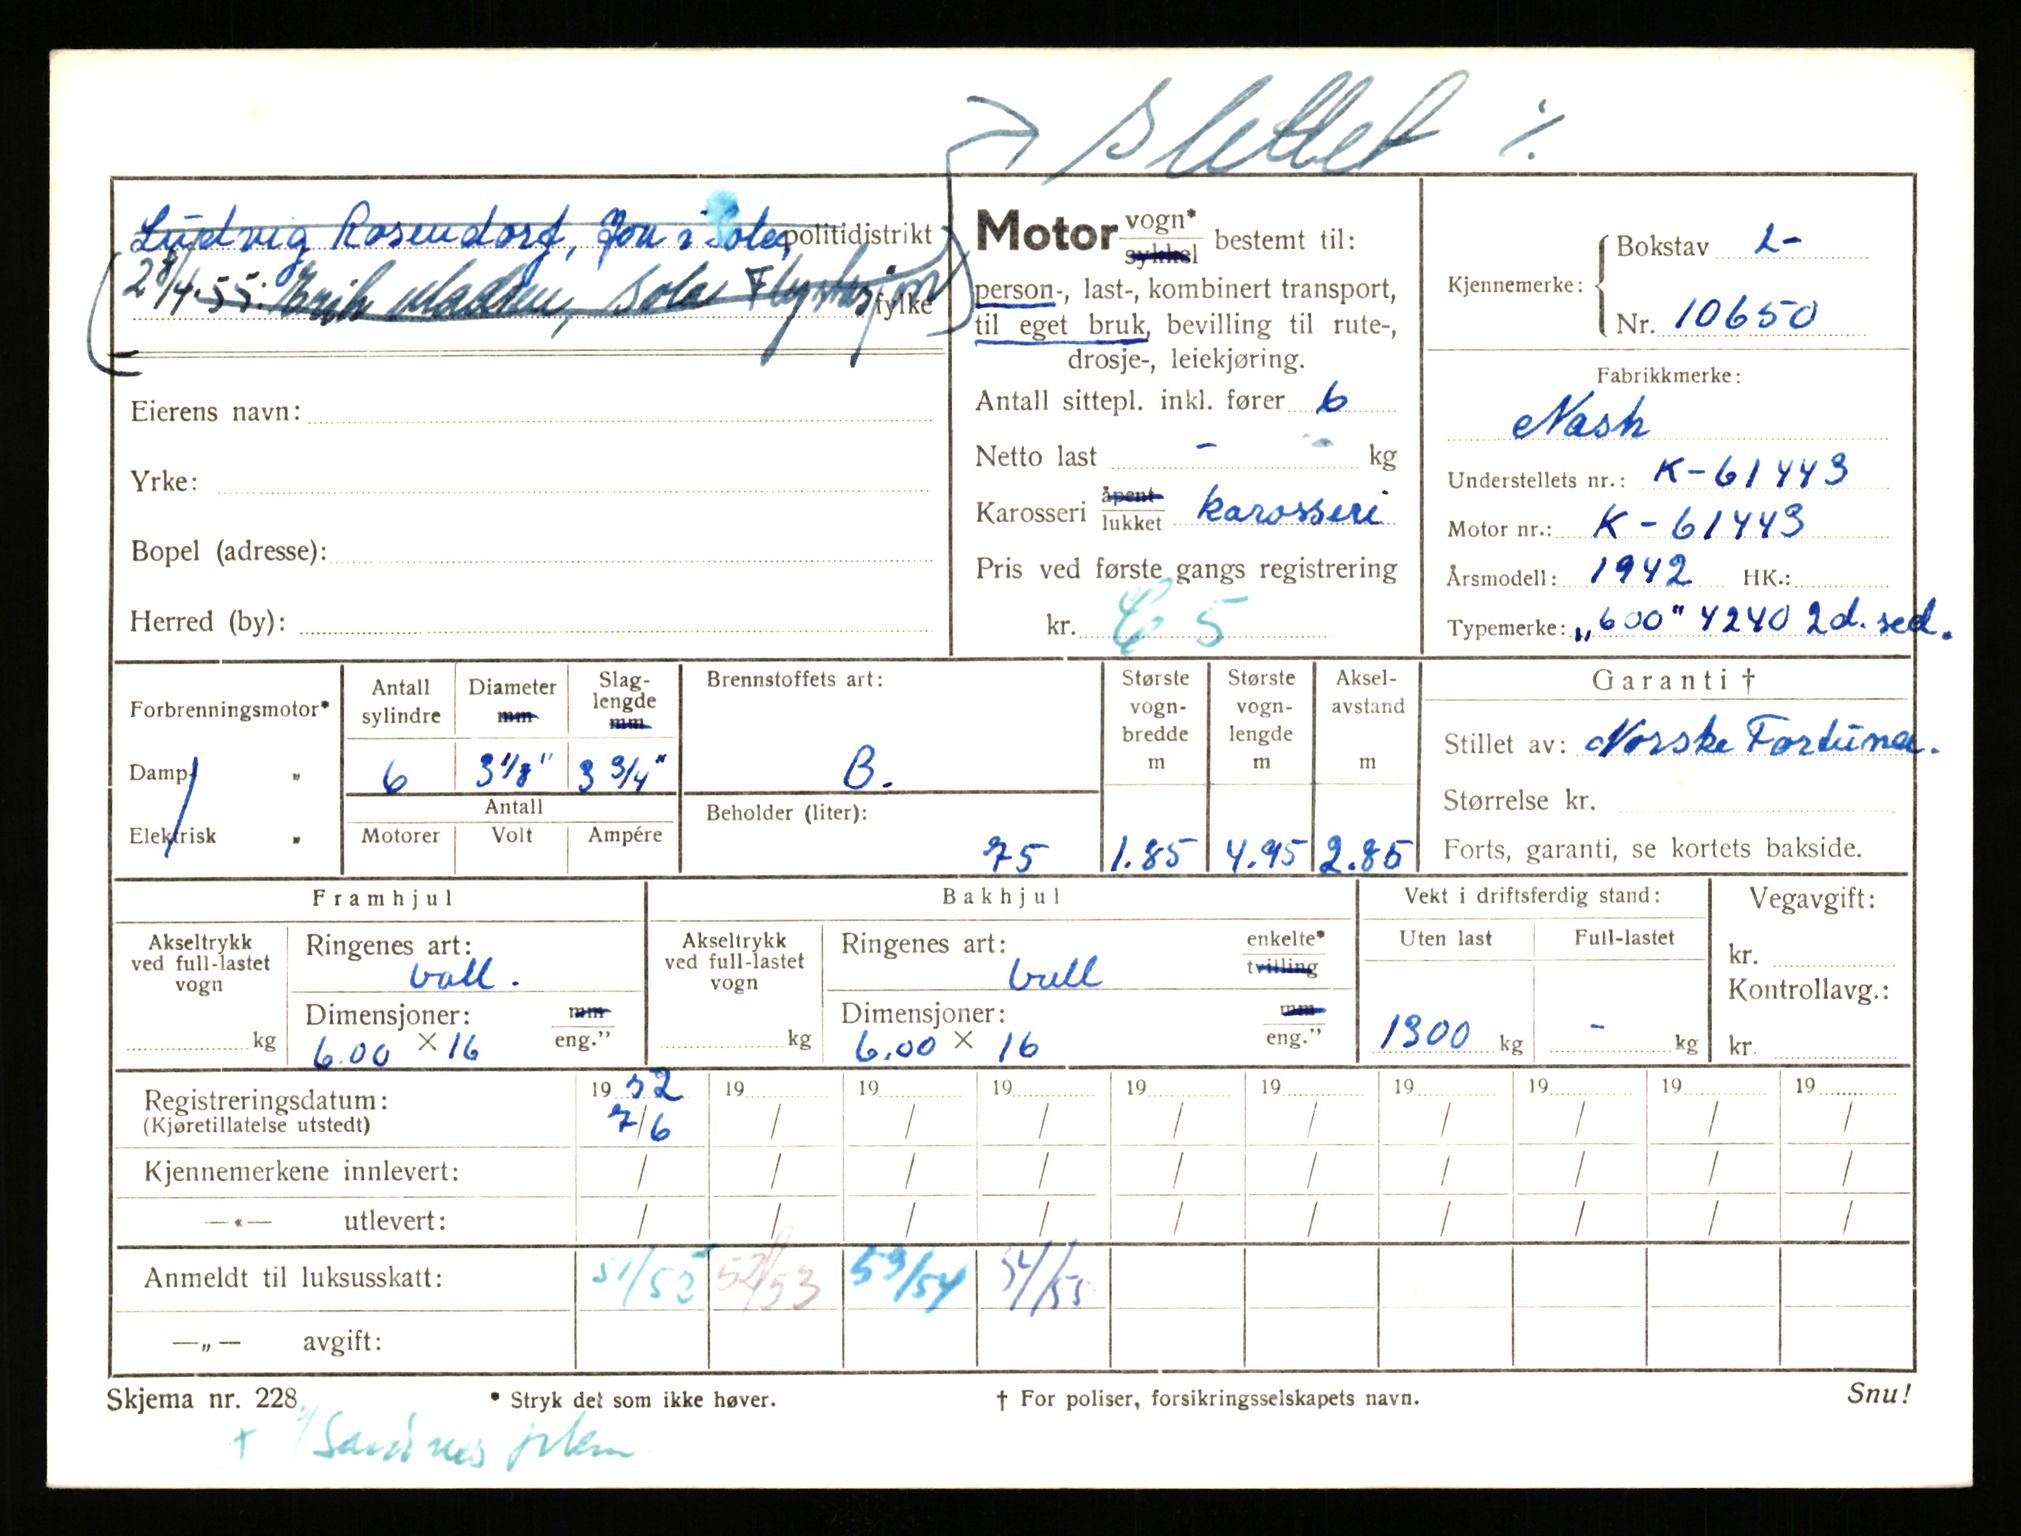 Slettet ·/.
Ludvig Rosendorf, Jon i Sola,
politidistrikt
28/4-55. Erik Madsen, Sola Flystasjon
fylke
Eierens navn:
Yrke:
Bopel (adresse):
Herred (by):
Motor vogn* sykkel bestemt til:
person-, last-, kombinert transport,
til eget bruk, bevilling til rute-,
drosje-, leiekjøring.
Antall sittepl. inkl. fører 6
Netto last - kg
Karosseri åpent lukket karosseri
Pris ved første gangs registrering
kr. 5
Kjennemerke: Bokstav L-
Nr. 10650
Fabrikkmerke:
Nash
Understellets nr.: K-61443
Motor nr.: K-61443
Årsmodell: 1942 HK.:
Typemerke: „600" 4240 2d. sed.
Forbrenningsmotor*
Damp- „
Elektrisk „
Antall sylindre
Diameter mm
Slaglengde mm
6 3 1/8" 3 3/4"
Antall
Motorer Volt Ampére
Brennstoffets art:
B.
Beholder (liter):
75
Største vogn-bredde m
Største vogn-lengde m
Aksel-avstand m
1.85 4.95 2.85
Garanti †
Stillet av: Norske Fortuna.
Størrelse kr.
Forts, garanti, se kortets bakside.
Framhjul
Akseltrykk ved full-lastet vogn
kg
Ringenes art:
ball.
Dimensjoner: mm eng.”
6.00 × 16
Bakhjul
Akseltrykk ved full-lastet vogn
kg
Ringenes art: enkelte* tvilling
ball
Dimensjoner: mm eng.”
6.00 × 16
Vekt i driftsferdig stand:
Uten last Full-lastet
1300 kg - kg
Vegavgift:
kr.
Kontrollavg.:
kr.
Registreringsdatum: 1952 19 19 19 19 19 19 19 19 19
(Kjøretillatelse utstedt) 7/6 / / / / / / / / /
Kjennemerkene innlevert: / / / / / / / / / /
—«— utlevert: / / / / / / / / / /
Anmeldt til luksusskatt: 51/52 52/53 53/54 54/55
—„— avgift:
Skjema nr. 228
* Stryk det som ikke høver.
† For poliser, forsikringsselskapets navn.
Snu!
+ Sandnes